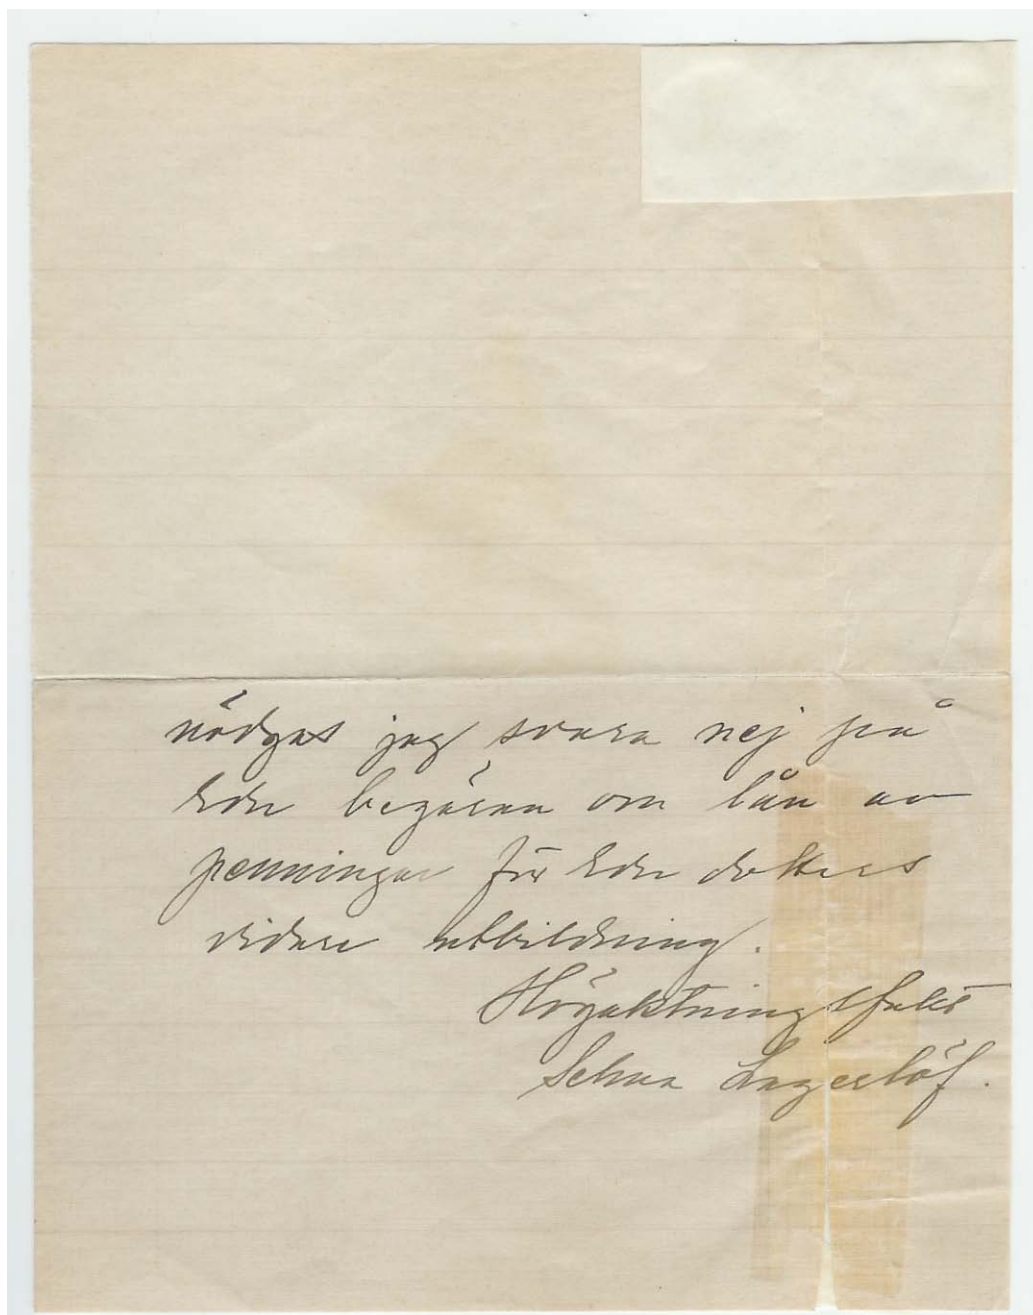 nödgas jag svara nej på
Eder begäran om lån av
penningar för Eder dotters
vidare utbildning.
Högaktningsfullt
Selma Lagerlöf.